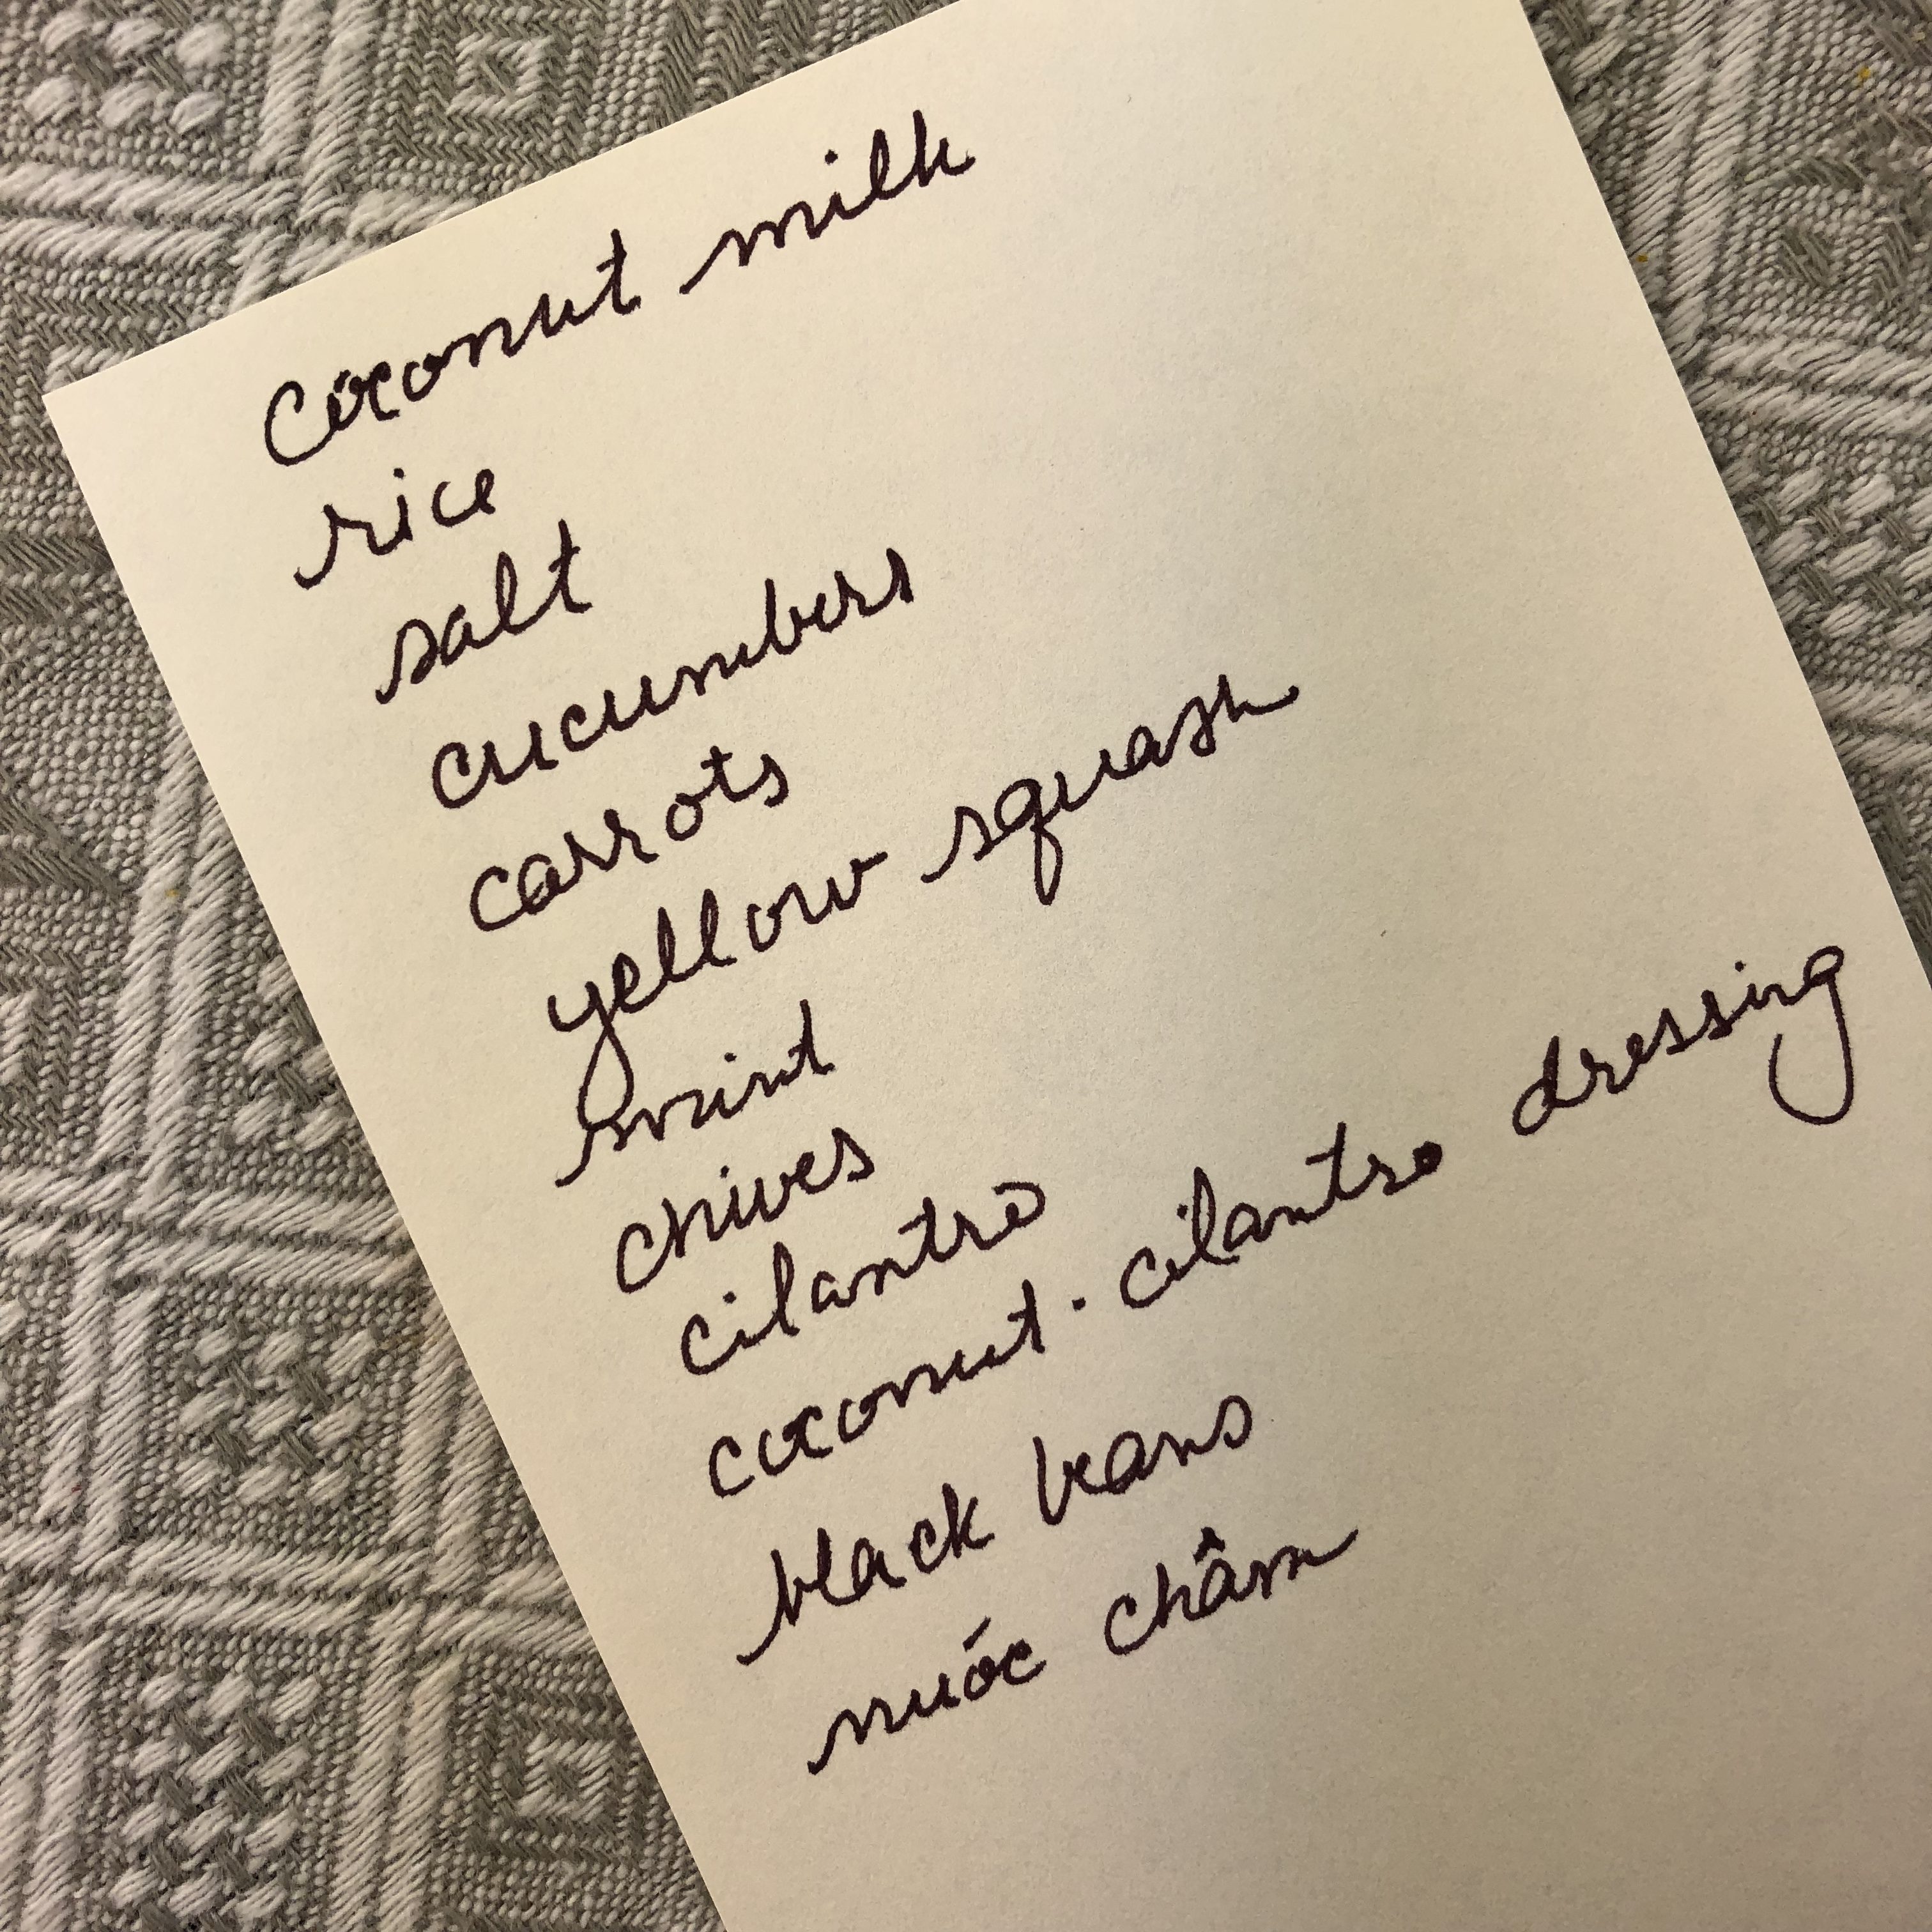 coconut milk
rice
salt
cucumbers
carrots
yellow squash
mint
chives
cilantro
coconut-cilantro dressing
black beans
nuóc châm